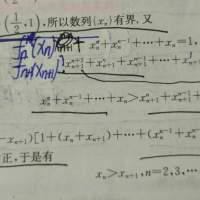 (1/2,1),所以数列{xₙ}有界,又
fₙ(xₙ)
xₙⁿ+xₙⁿ⁻¹+…+xₙ=1,
fₙ₊₁(xₙ₊₁)
xₙⁿ+xₙⁿ⁻¹+…+xₙ>xₙ₊₁ⁿ+
-xₙ₊₁)[1+(xₙ+xₙ₊₁)+…+(xₙⁿ⁻¹+xₙ
正,于是有
xₙ>xₙ₊₁,n=2,3,…